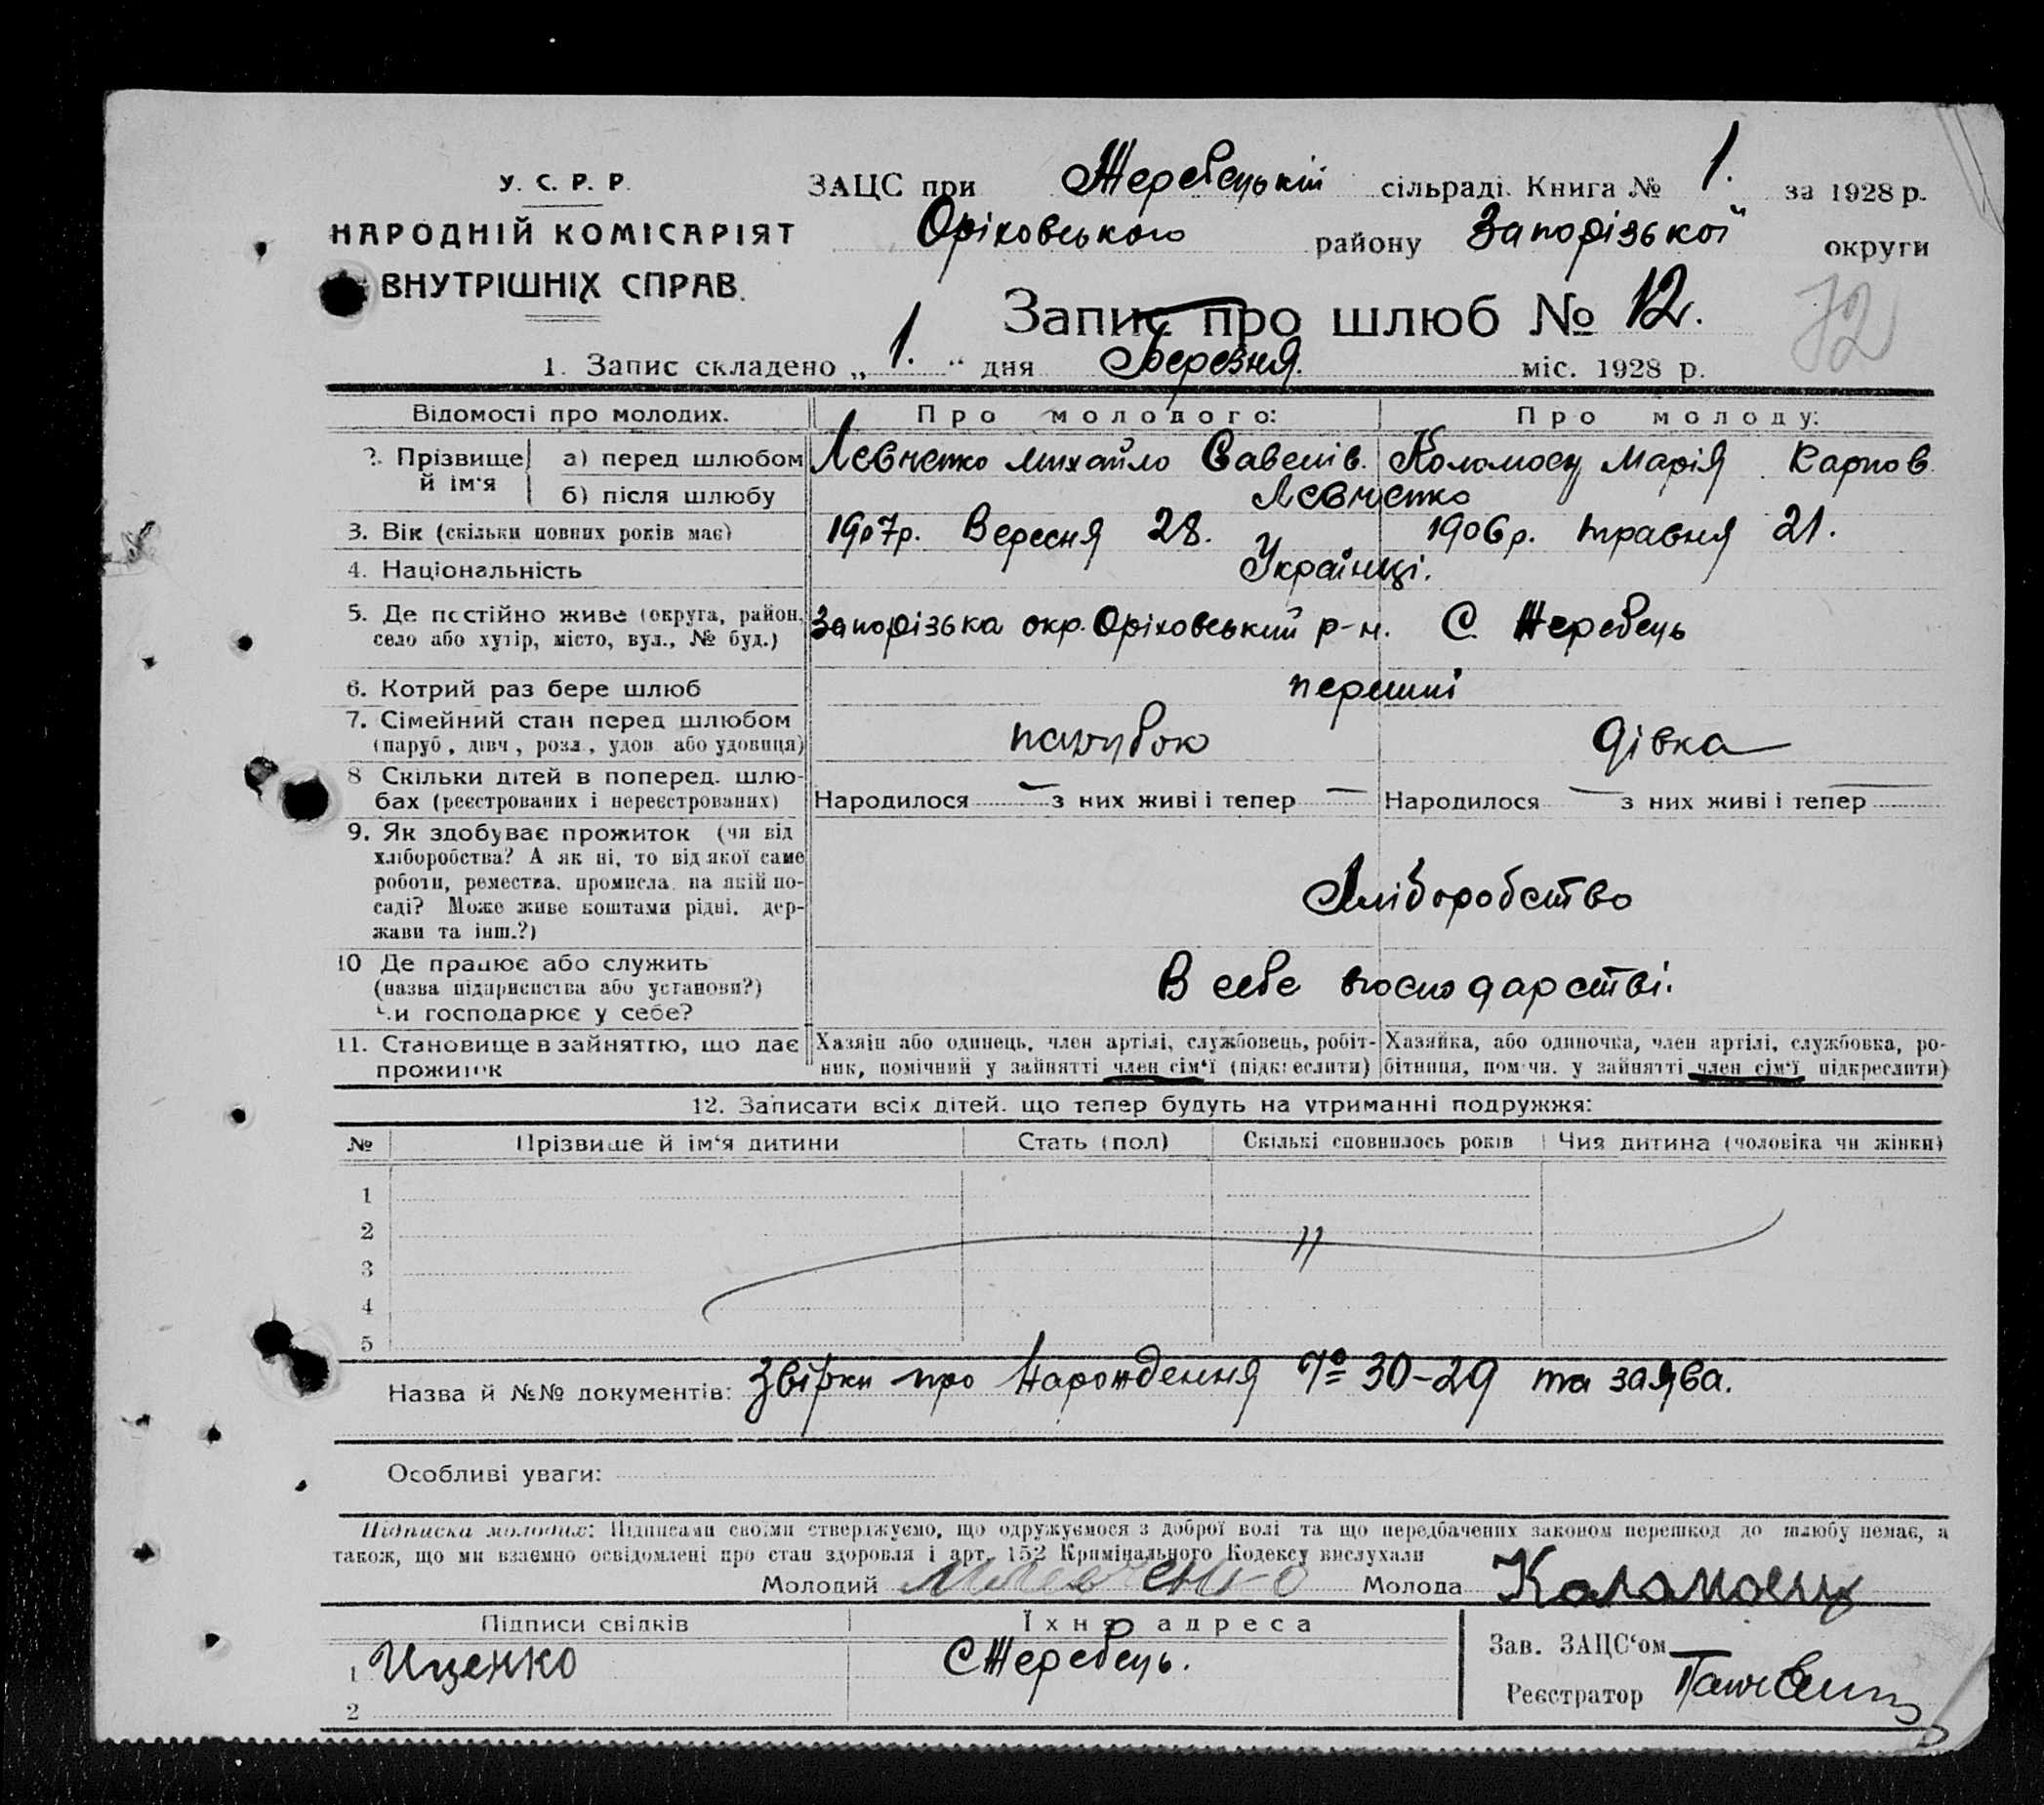 У. С. Р. Р.
НАРОДНІЙ КОМІСАРІЯТ
ВНУТРІШНІХ СПРАВ.
ЗАЦС при Жеребецькій сільраді. Книга № 1. за 1928 р.
Оріховського району Запорізької округи
Запис про шлюб № 12.
12
1. Запис складено „ 1. “ дня Березня. міс. 1928 р.
Відомості про молодих. Про молодого: Про молоду:
2. Прізвище й ім'я а) перед шлюбом Лєвченко Михайло Савелів. Коломоец Марія Карпов.
б) після шлюбу Лєвченко
3. Вік (скільки повних років має) 1907р. Вересня 28. 1906р. травня 21.
4. Національність Українці.
5. Де постійно живе (округа, район, село або хутір, місто, вул., № буд.) Запорізька окр. Оріховський р-н. С. Жеребець
6. Котрий раз бере шлюб перший
7. Сімейний стан перед шлюбом (паруб., дівч., розл., удов. або удовиця) парубок дівка
8 Скільки дітей в поперед. шлюбах (реєстрованих і нереєстрованих) Народилося — з них живі і тепер — Народилося — з них живі і тепер —
9. Як здобуває прожиток (чи від
хліборобства? А як ні, то від якої саме
роботи, ремества, промисла, на якій по-
саді? Може живе коштами рідні, дер-
жави та інш.?)
Хліборобство
10 Де працює або служить
(назва підприємства або установи?)
Чи господарює у себе?
В себе господарстві.
11. Становище в зайняттю, що дає прожиток
Хазяїн або одинець, член артілі, службовець, робіт-
ник, помічний у зайнятті член сім'ї (підкреслити)
Хазяйка, або одиночка, член артілі, службовка, ро-
бітниця, помічн. у зайнятті член сім'ї підкреслити)
12. Записати всіх дітей, що тепер будуть на утриманні подружжя:
№ Прізвище й ім'я дитини Стать (пол) Скількі сповнилось років Чия дитина (чоловіка чи жінки)
1
2
3
4
5
Назва й №№ документів: про Народження № 30-29 та заява.
Особливі уваги:
Підписка молодих: Підписами своїми стверджуємо, що одружуємося з доброї волі та що передбачених законом перешкод до шлюбу немає, а
також, що ми взаємно освідомлені про стан здоровля і арт. 152 Кримінального Кодексу вислухали
Молодий Молода Каламоец
Підписи свідків Їхня адреса
1 Ищенко С Жеребець.
2
Зав. ЗАЦС'ом
Реєстратор